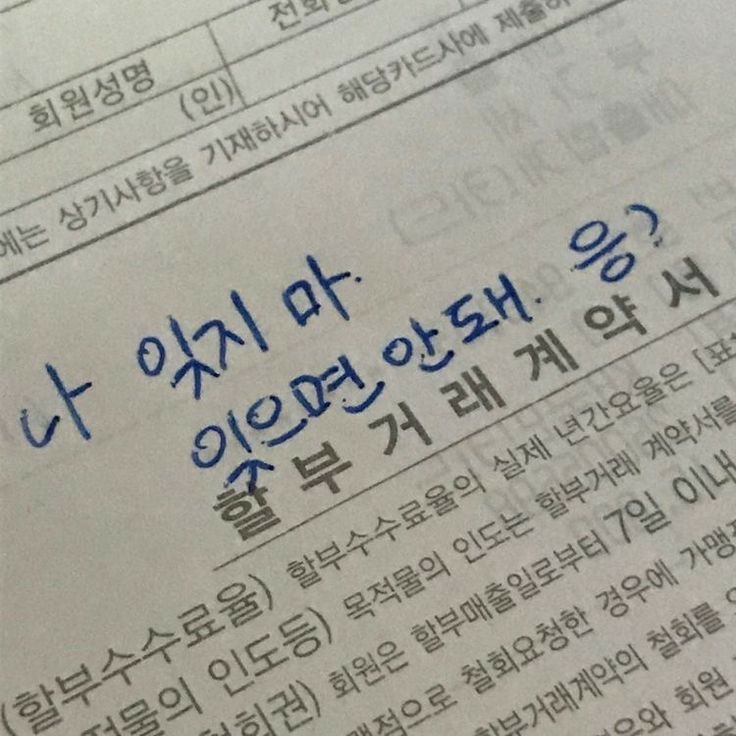 회원성명
(인)
에는 상기사항을 기재하시어 해당카드사에 제출하
나 잊지 마.
잊으면 안돼. 응?
할부거래계약서
(할부수수료율) 할부수수료율의 실제 년간요율은 [표
목적물의 인도등) 목적물의 인도는 할부거래 계약서를
철회권) 회원은 할부매출일로부터 7일 이내
으로 철회요청한 경우에 가맹
할부거래계약의 철회를
회원